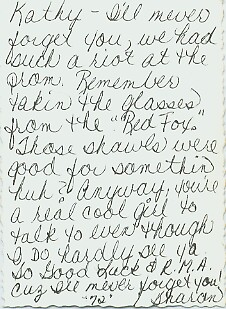 Kathy - I'll never
forget you, we had
such a riot at the
prom. Remember
takin the glasses
from the "Red Fox."
Those shawls were
good for somethin
huh? Anyway, you're
a real cool girl to
talk to even though
I do hardly see ya
So Good Luck & R.M.A.
cuz I'll never forget you!
"72" Sharon